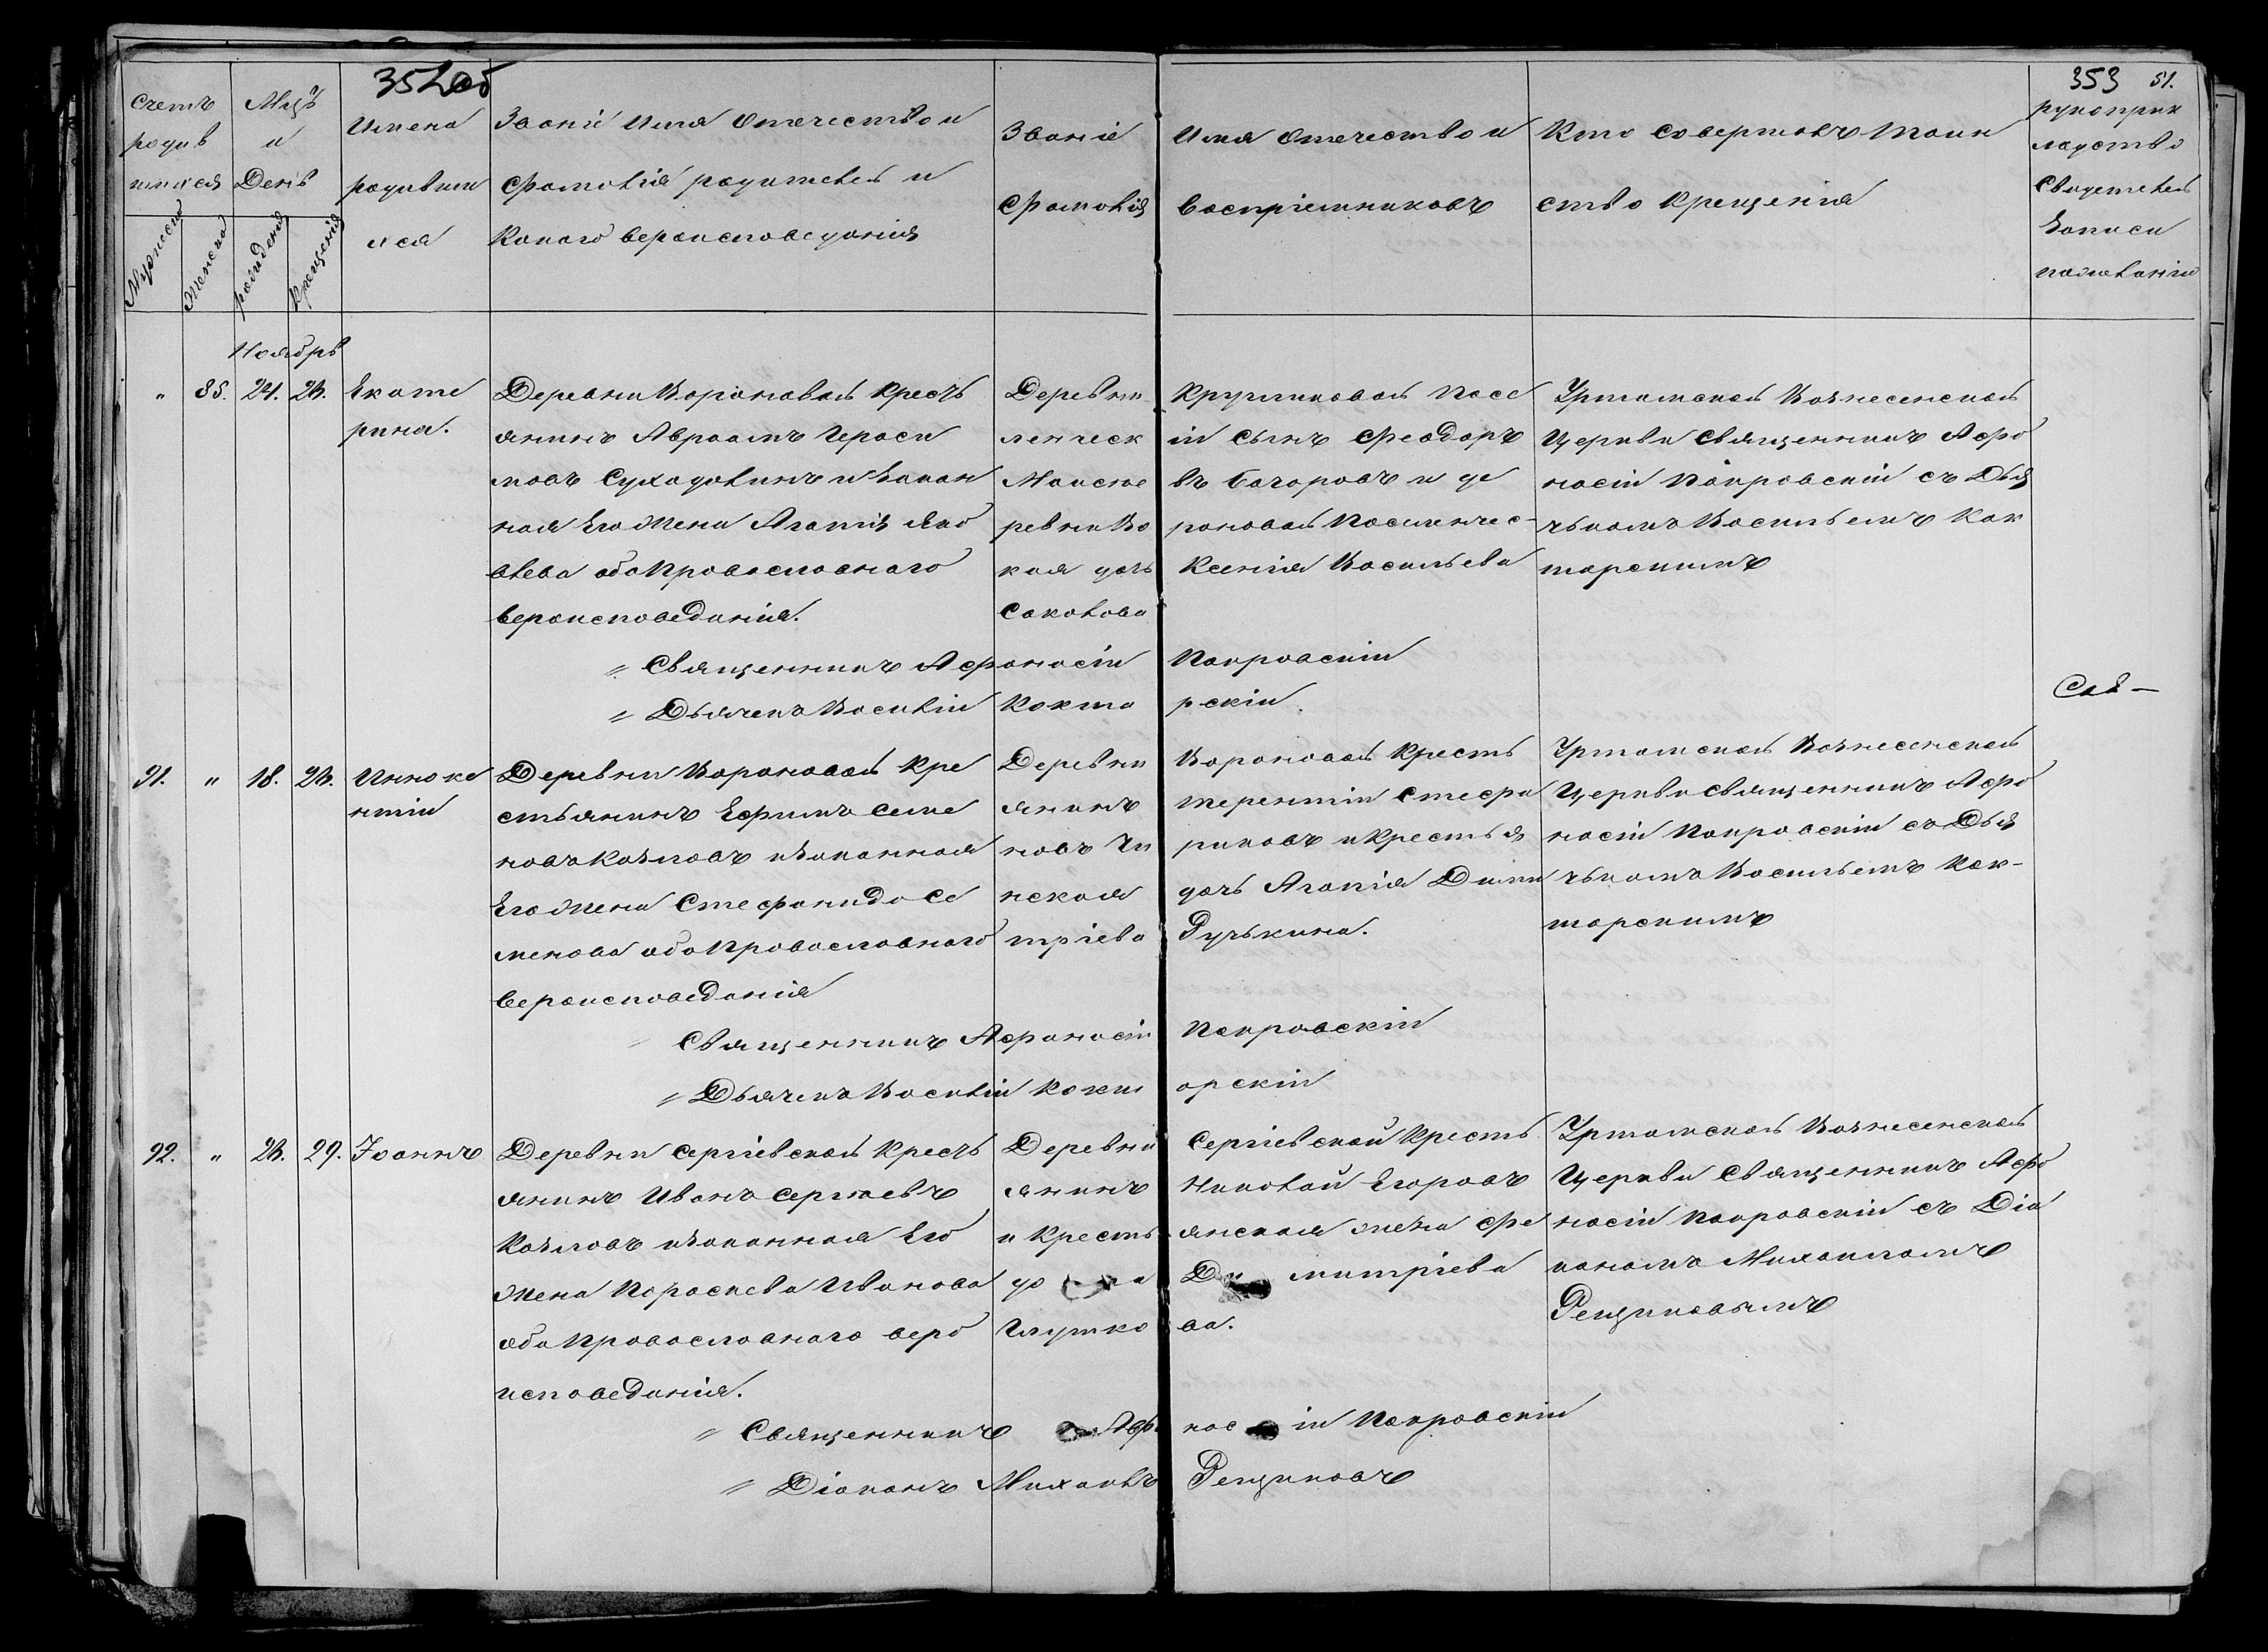 352об
353 51.
Счетъ родив шихся
Мцъ и День
Имена родивши яся
Званіе Имя Отечество и
Фамилія родителей и
Какого вероисповеданія
Званіе Имя Отечество и
Фамилія Воспріемниковъ
Кто Совершалъ Таин
ство Крещенія
рукоприк
ладство
Свидетелей
Записи
пожеланію
Мужеска
Женска
рожденія
Крещенія
Ноябрь
" 85. 24. 26. Екате
рина.
Деревни Вороновой Крестъ
янинъ Авраамъ Гераси
мовъ Суходолинъ и Закон
ная Его Жена Агапія Яко
влева оба Православнаго
Вероисповеданія.
Деревни Кругликовой Посе
ленческ ій Сынъ Феодоръ
въ Багоровъ и де
ревни Во роновой Поселенчес-
кая дочь Ксенія Васильева
Соколова
Уртамской Вознесенской
Церкви Священникъ Афо
насій Покровскій съ Дья
чькомъ Васильемъ Кок
торскимъ
" Священникъ Афонасій Покровскій
" Дьячекъ Василій Кокто рскій.
Саб—
91. " 18. 26. Инноке
нтій
Деревни Вороновой Кре
стьянинъ Ефимъ Семе
новъ Козловъ и Законная
Его Жена Стефанида Се
менова оба Православнаго
Вероисповеданія
Деревни Вороновой Кресть
янинъ Терентій Стефа
новъ Чи риковъ и Крестья
нская дочь Агапія Дими
тріева Ручькина.
Уртамской Вознесенской
Церкви Священникъ Афо
насій Покровскій съ Дья
чькомъ Васильемъ Кок-
торскимъ
Священникъ Афонасій Покровскій
" Дьячекъ Василій Кокт орскій
92. " 26. 29. Іоаннъ
Деревни Сергіевской Крестъ
янинъ Иванъ Сергіевъ
Козловъ и Законная Его
Жена Параскева Иванова
оба Православнаго веро
исповеданія.
Деревни Сергіевской Кресть
янинъ Николай Егоровъ
и Кресть янская жена Фе
до а Ди митріева
Глушко ва.
Уртамской Вознесенской
Церкви Священникъ Афо
насій Покровскій съ Діа
кономъ Михаиломъ
Рещиковымъ
" Священникъ Афо нас ій Покровскій
" Діаконъ Михаилъ Рещиковъ